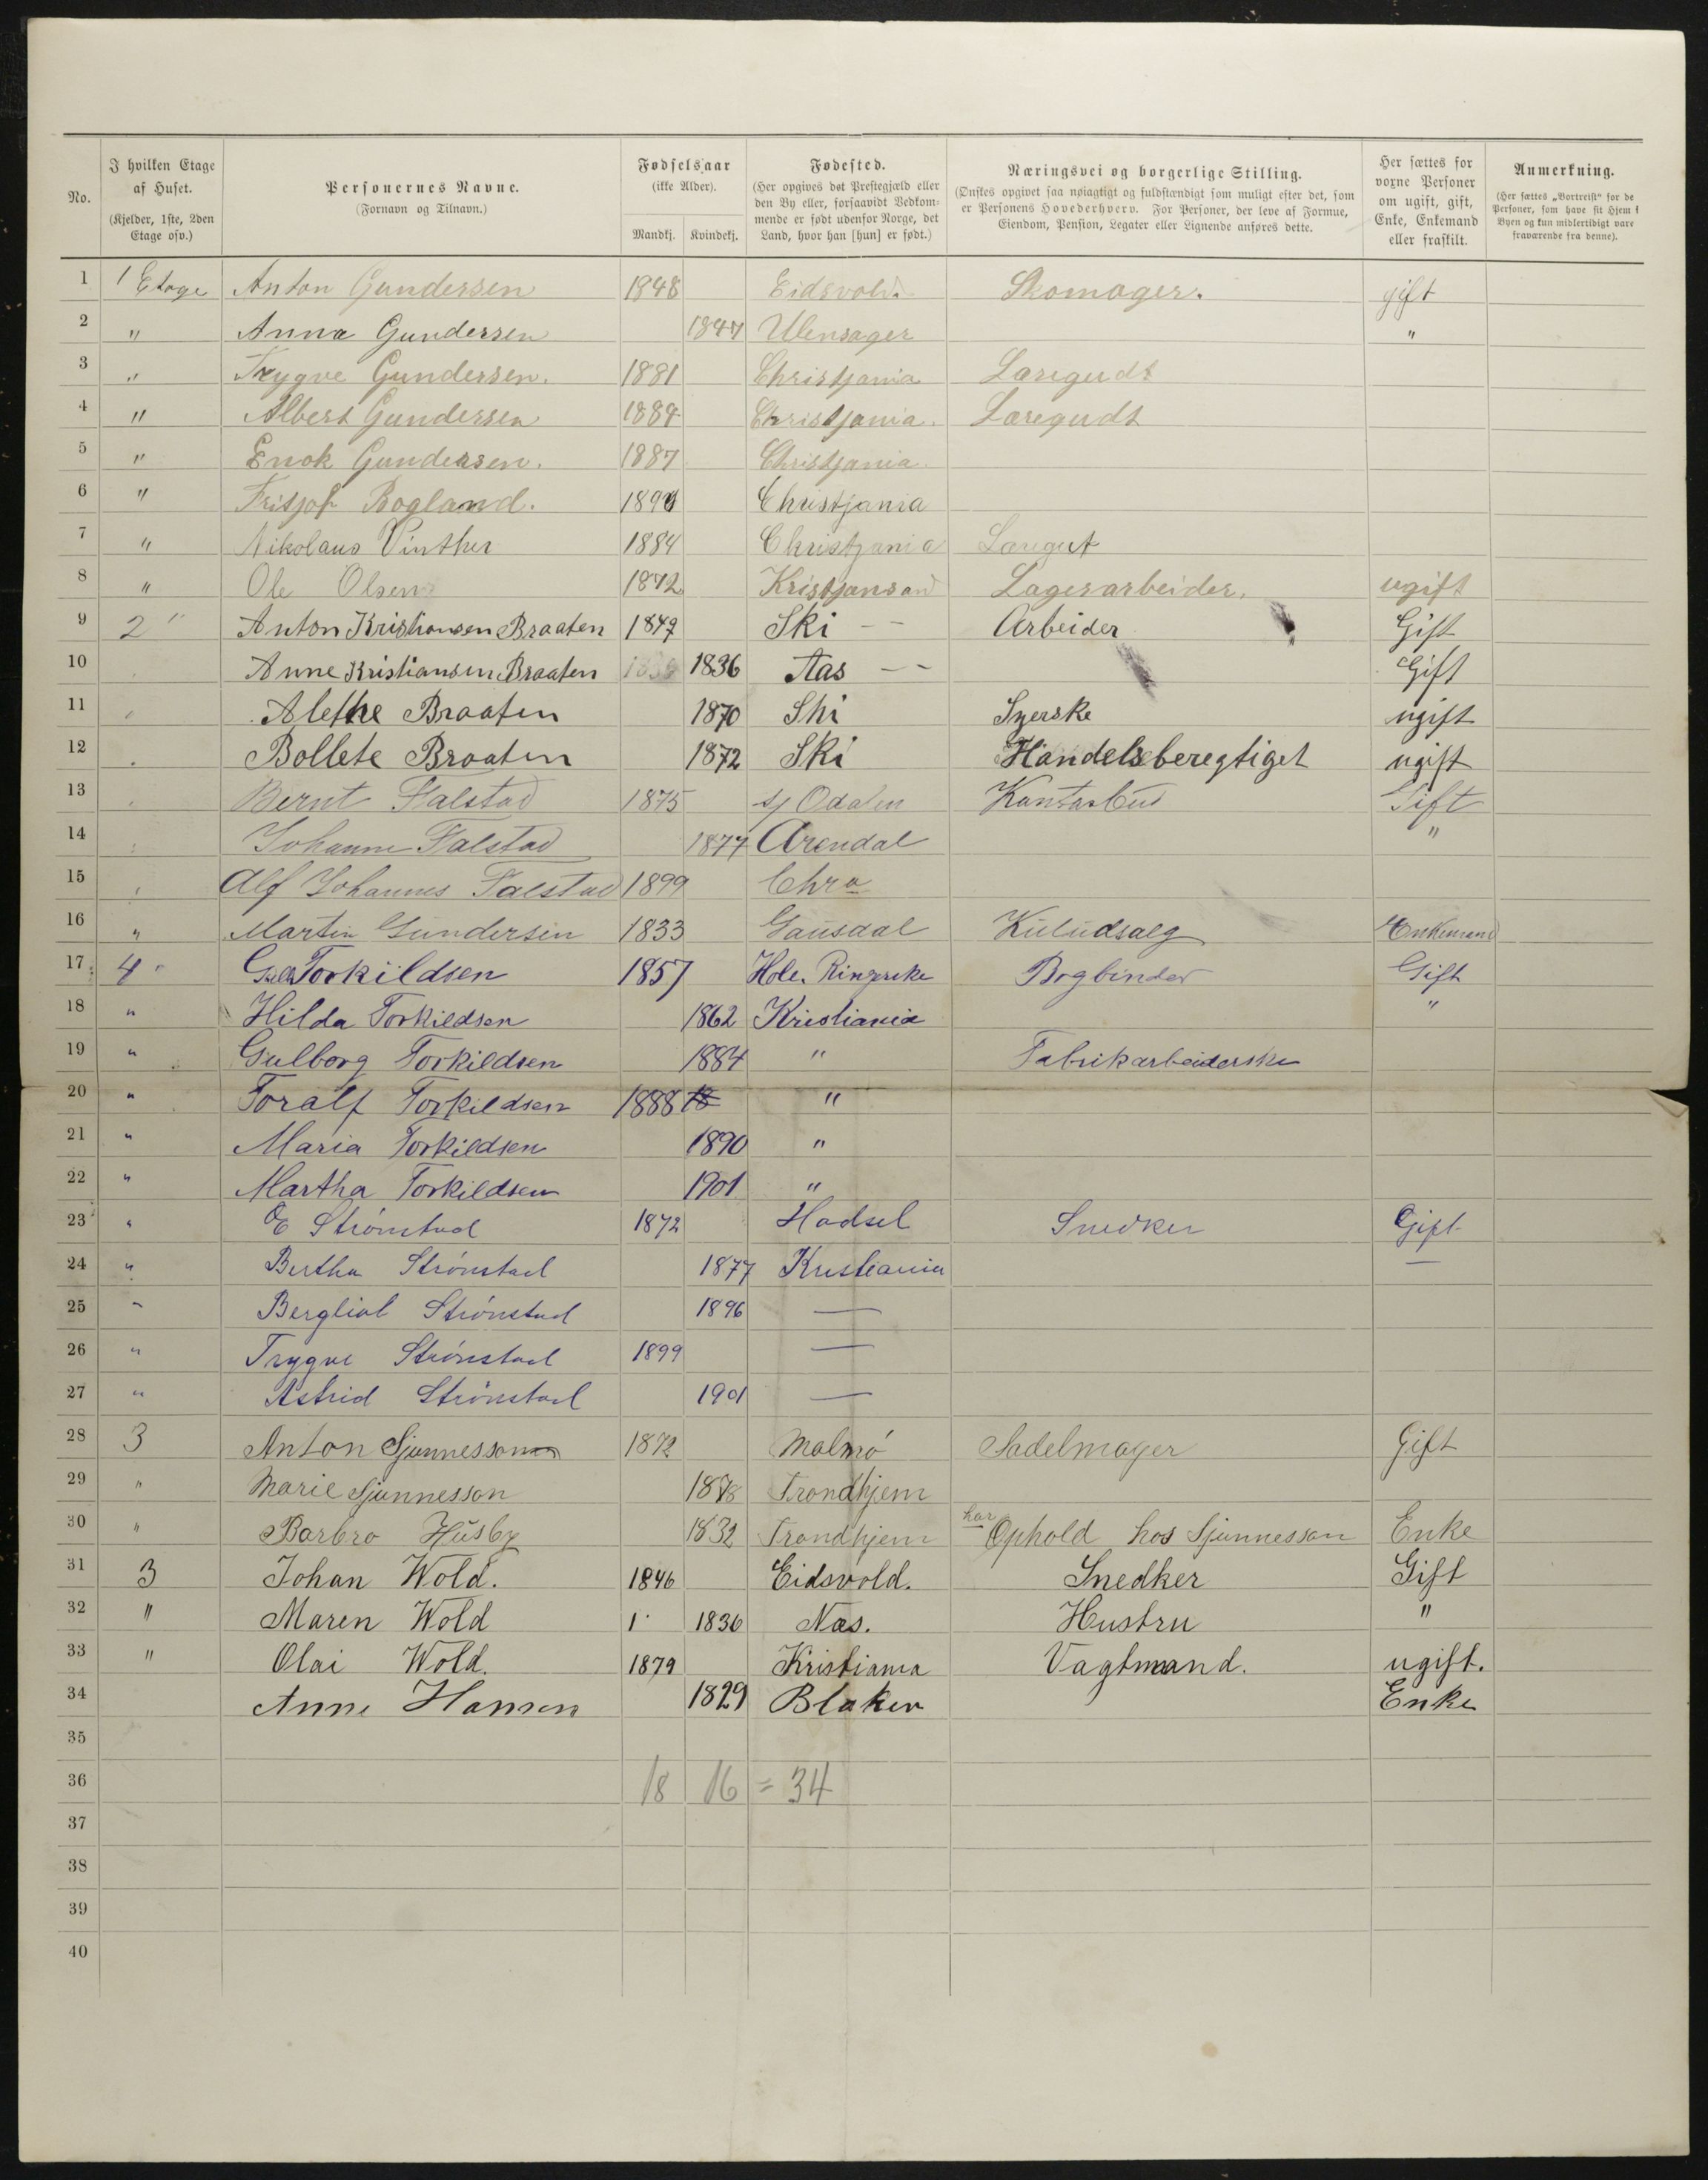 No. I hvilken Etage af Huset. (Kjelder, 1ste, 2den Etage osv.) Personernes Navne. (Fornavn og Tilnavn.) Fødselsaar (ikke Alder). Mandkj. Kvindekj. Fødested. (Her opgives det Prestegjæld eller den By eller, forsaavidt Vedkommende er født udenfor Norge, det Land, hvor han [hun] er født.) Næringsvei og borgerlige Stilling. (Ønskes opgivet saa nøiagtigt og fuldstændigt som muligt efter det, som er Personens Hovederhverv. For Personer, der leve af Formue, Eiendom, Pension, Legater eller Lignende anføres dette. Her sættes for voxne Personer om ugift, gift, Enke, Enkemand eller fraskilt. Anmerkning. (Her sættes „Bortreist“ for de Personer, som have sit Hjem i Byen og kun midlertidigt vare fraværende fra denne).
1 1 Etage Anton Gundersen 1848 Eidsvold. Skomager. gift
2 " Anna Gundersen 1847 Ulensager "
3 " Trygve Gundersen. 1881 Christjania Læregudt
4 " Albert Gundersen 1884 Christjania. Læregudt
5 " Enok Gundersen. 1887 Christjania.
6 " Fritjof Bogland. Christjania
7 " Nikolaus Vinther 1884 Christjania Læregut
8 " Ole Olsen 1872 Kristjansand Lagerarbeider. ugift
9 2 " Anton Kristiansen Braaten 1847 Ski — Arbeider Gift
10 Anne Kristiansen Braaten 1836 Aas — Gift
11 " Alethe Braaten 1870 Ski Syerske ugift
12 " Bollete Braaten 1872 Ski Handelsberegtiget ugift
13 " Bernt Falstad 1875 Sj Odalen Kontorbud Gift
14 " Johanne Falstad 1877 Arendal "
15 " Alf Johannes Falstad 1899 Chra
16 " Martin Gundersen 1833 Gausdal Kuludsalg Enkemand
17 4 " Torkildsen 1857 Hole. Ringerike Bogbinder Gift
18 " Hilda Torkildsen 1862 Kristiania "
19 " Gulborg Torkildsen 1884 " Fabrikarbeiderske
20 " Toralf Torkildsen 1888 18 "
21 " Maria Torkildsen 1890 "
22 " Martha Torkildsen 1901 "
23 " E Strønstad 1872 Hadsel Snedker Gift
24 " Bertha Strønstad 1877 Kristiania —
25 " Bergliot Strønstad 1896 —
26 " Trygve Strønstad 1899 —
27 " Astrid Strønstad 1901 —
28 3 Anton Sjunnesson 1872 Malmö Sadelmager Gift
29 " Marie Sjunnesson 1878 Trondhjem
30 " Barbro Husby 1832 Trondhjem har Ophold hos Sjunnesson Enke
31 3 Johan Wold. 1846 Eidsvold. Snedker Gift
32 " Maren Wold 1 1836 Næs. Hustru "
33 " Olai Wold. 1879 Kristiania Vagtmand. ugift.
34 Anne Hansen 1829 Blaker Enke
35
36 18 16 = 34
37
38
39
40